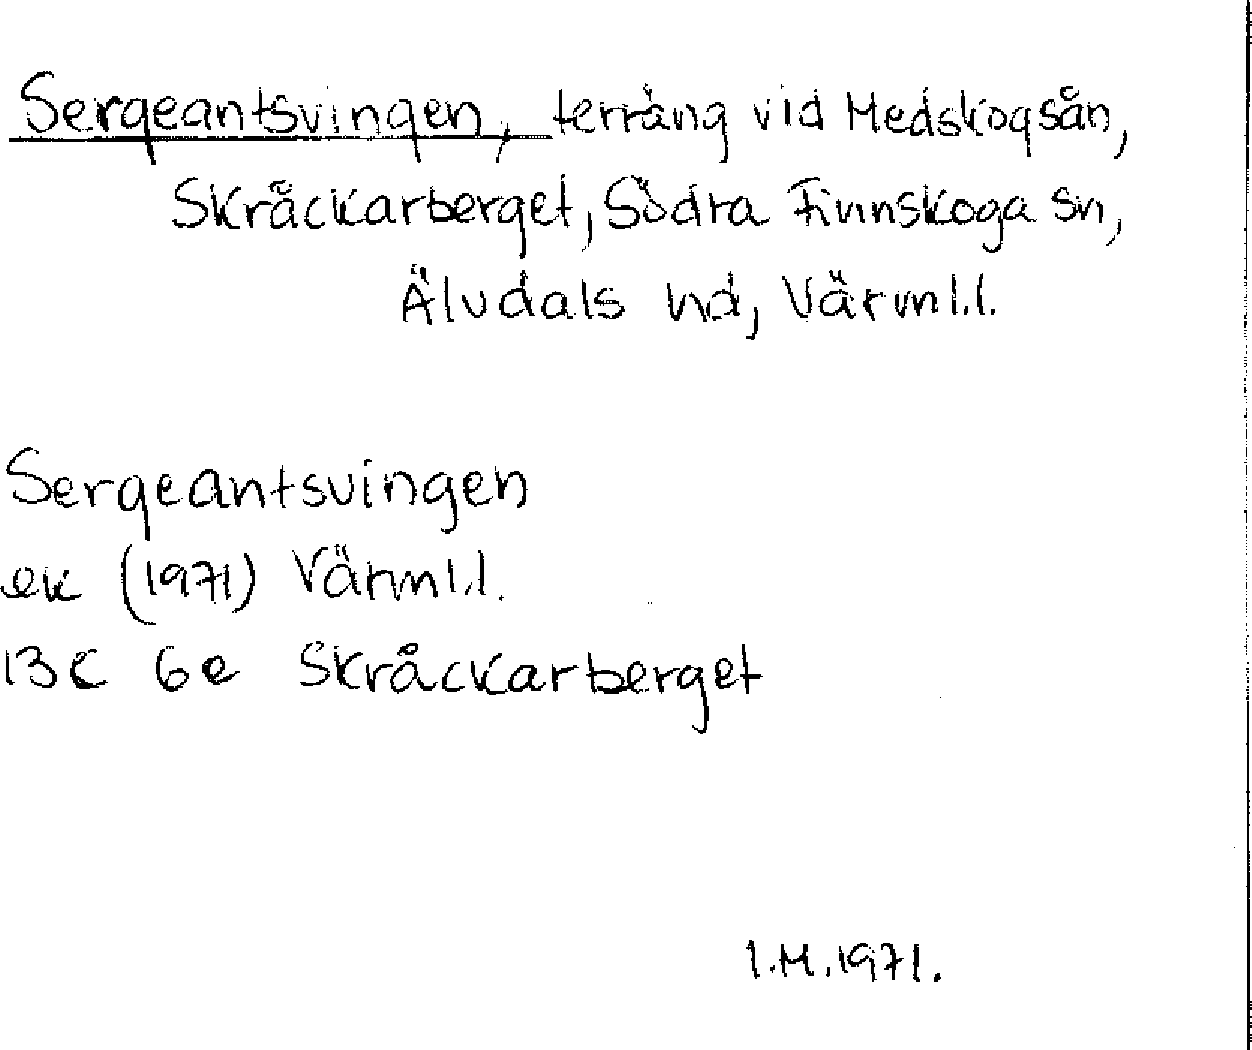 Sergeantsvingen, terräng vid Medskogsån,
Skråckarberget, Södra Finnskoga sn,
Älvdals hd, Värml.l.
Sergeantsvingen
ek (1971) Värml.l.
13C 6e Skråckarberget
I.M.1971.